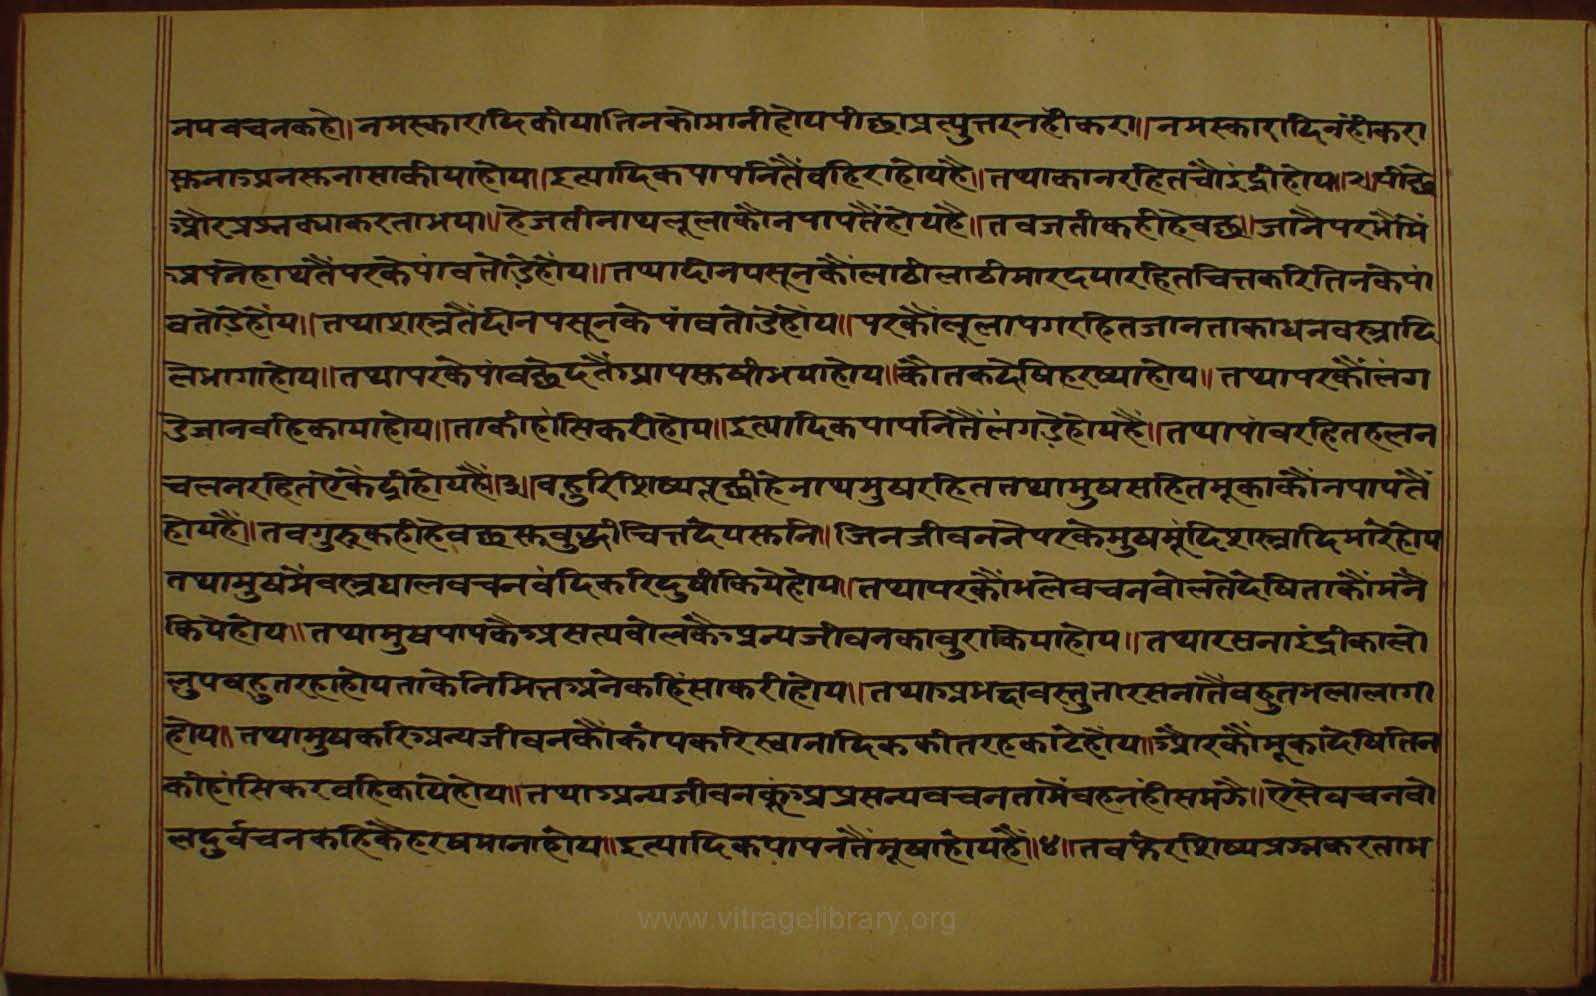 नपवचनकहे॥नमस्कारादिकीयातिनकोमानीहोयपीछाप्रत्युत्तरनहीकरा॥नमस्कारादिनंहीकरा
सुनाअनसुनासाकीयाहोय॥इत्यादिकपापनितैंवहिराहोयहै॥तथाकानरहितचौइंद्रीहोय॥२॥पीछै
औरप्रश्नक्याकरताभया॥हेजतीनाथलूलाकौनपापतैंहोयहै॥तवजतीकहीहेवछ॥जानैपरभौमैं
अपनेहाथतैंपरकेपांवतोडेहोय॥तथादीनपसूनकौंलाठीलाठीमारदयारहितचित्तकरितिनकेपां
वतोडेहोय॥तथाशस्त्रतैंदीनपसूनकेपांवतोडेहोय॥परकौंलूलापगरहितजानताकाधनवस्त्रादि
लेभागाहोय॥तथापरकेपांवछेदतैंआपसुषीभयाहोय॥कौतकदेषिहरष्याहोय॥तथापरकौंलंग
डेजानवहिकायाहोय॥ताकीहांसिकरीहोय॥इत्यादिकपापनितैंलंगडेहोयहैं॥तथापांवरहितहलन
चलनरहितऐकेंद्रीहोयहै॥३॥वहुरिशिष्यपूछीहेनाथमुषरहिततथामुषसहितमूकाकौंनपापतैं
होयहै॥तवगुरूकहीहेवछसुवुद्धीचित्तदेयसुनि॥जिनजीवननेपरकेमुषमूंदिशस्त्रादिमारेहोय
तथामुषमैंवस्त्रघालवचनवंदिकरिदुषीकियेहोय॥तथापरकौंभलेवचनवोलतेदेषिताकौंमनै
कियेहोय॥तथामुषपापकैअसत्यवोलकैअन्यजीवनकावुराकियाहोय॥तथारसनाइंद्रीकालो
लुपवहुतरहाहोयताकेनिमित्तअनेकहिंसाकरीहोय॥तथाअभक्षवस्तुतारसनातैंवहुतभलालागा
होय॥तथामुषकरिअन्यजीवनकौंकोपकरिस्वानादिककीतरहकाटेहोय॥औरकौंमूकादेषितिन
कीहांसिकरवहिकायेहोय॥तथाअन्यजीवनकूंअप्रसन्यवचनतामैंवहनंहीसमझै॥ऐसेवचनवो
लदुर्वचनकहिकैहरषमानाहोय॥इत्यादिकपापनतैंमूषाहोयहैं॥४॥तवफेरशिष्यप्रश्नकरताभ
www.vitragelibrary.org